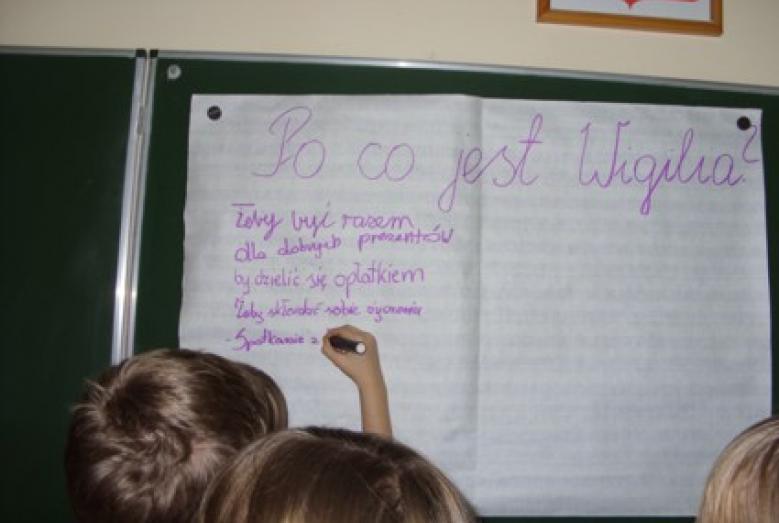 Po co jest Wigilia?
Żeby być razem
dla dobrych prezentów
by dzielić się opłatkiem
Żeby składać sobie życzenia
- Spotkanie z